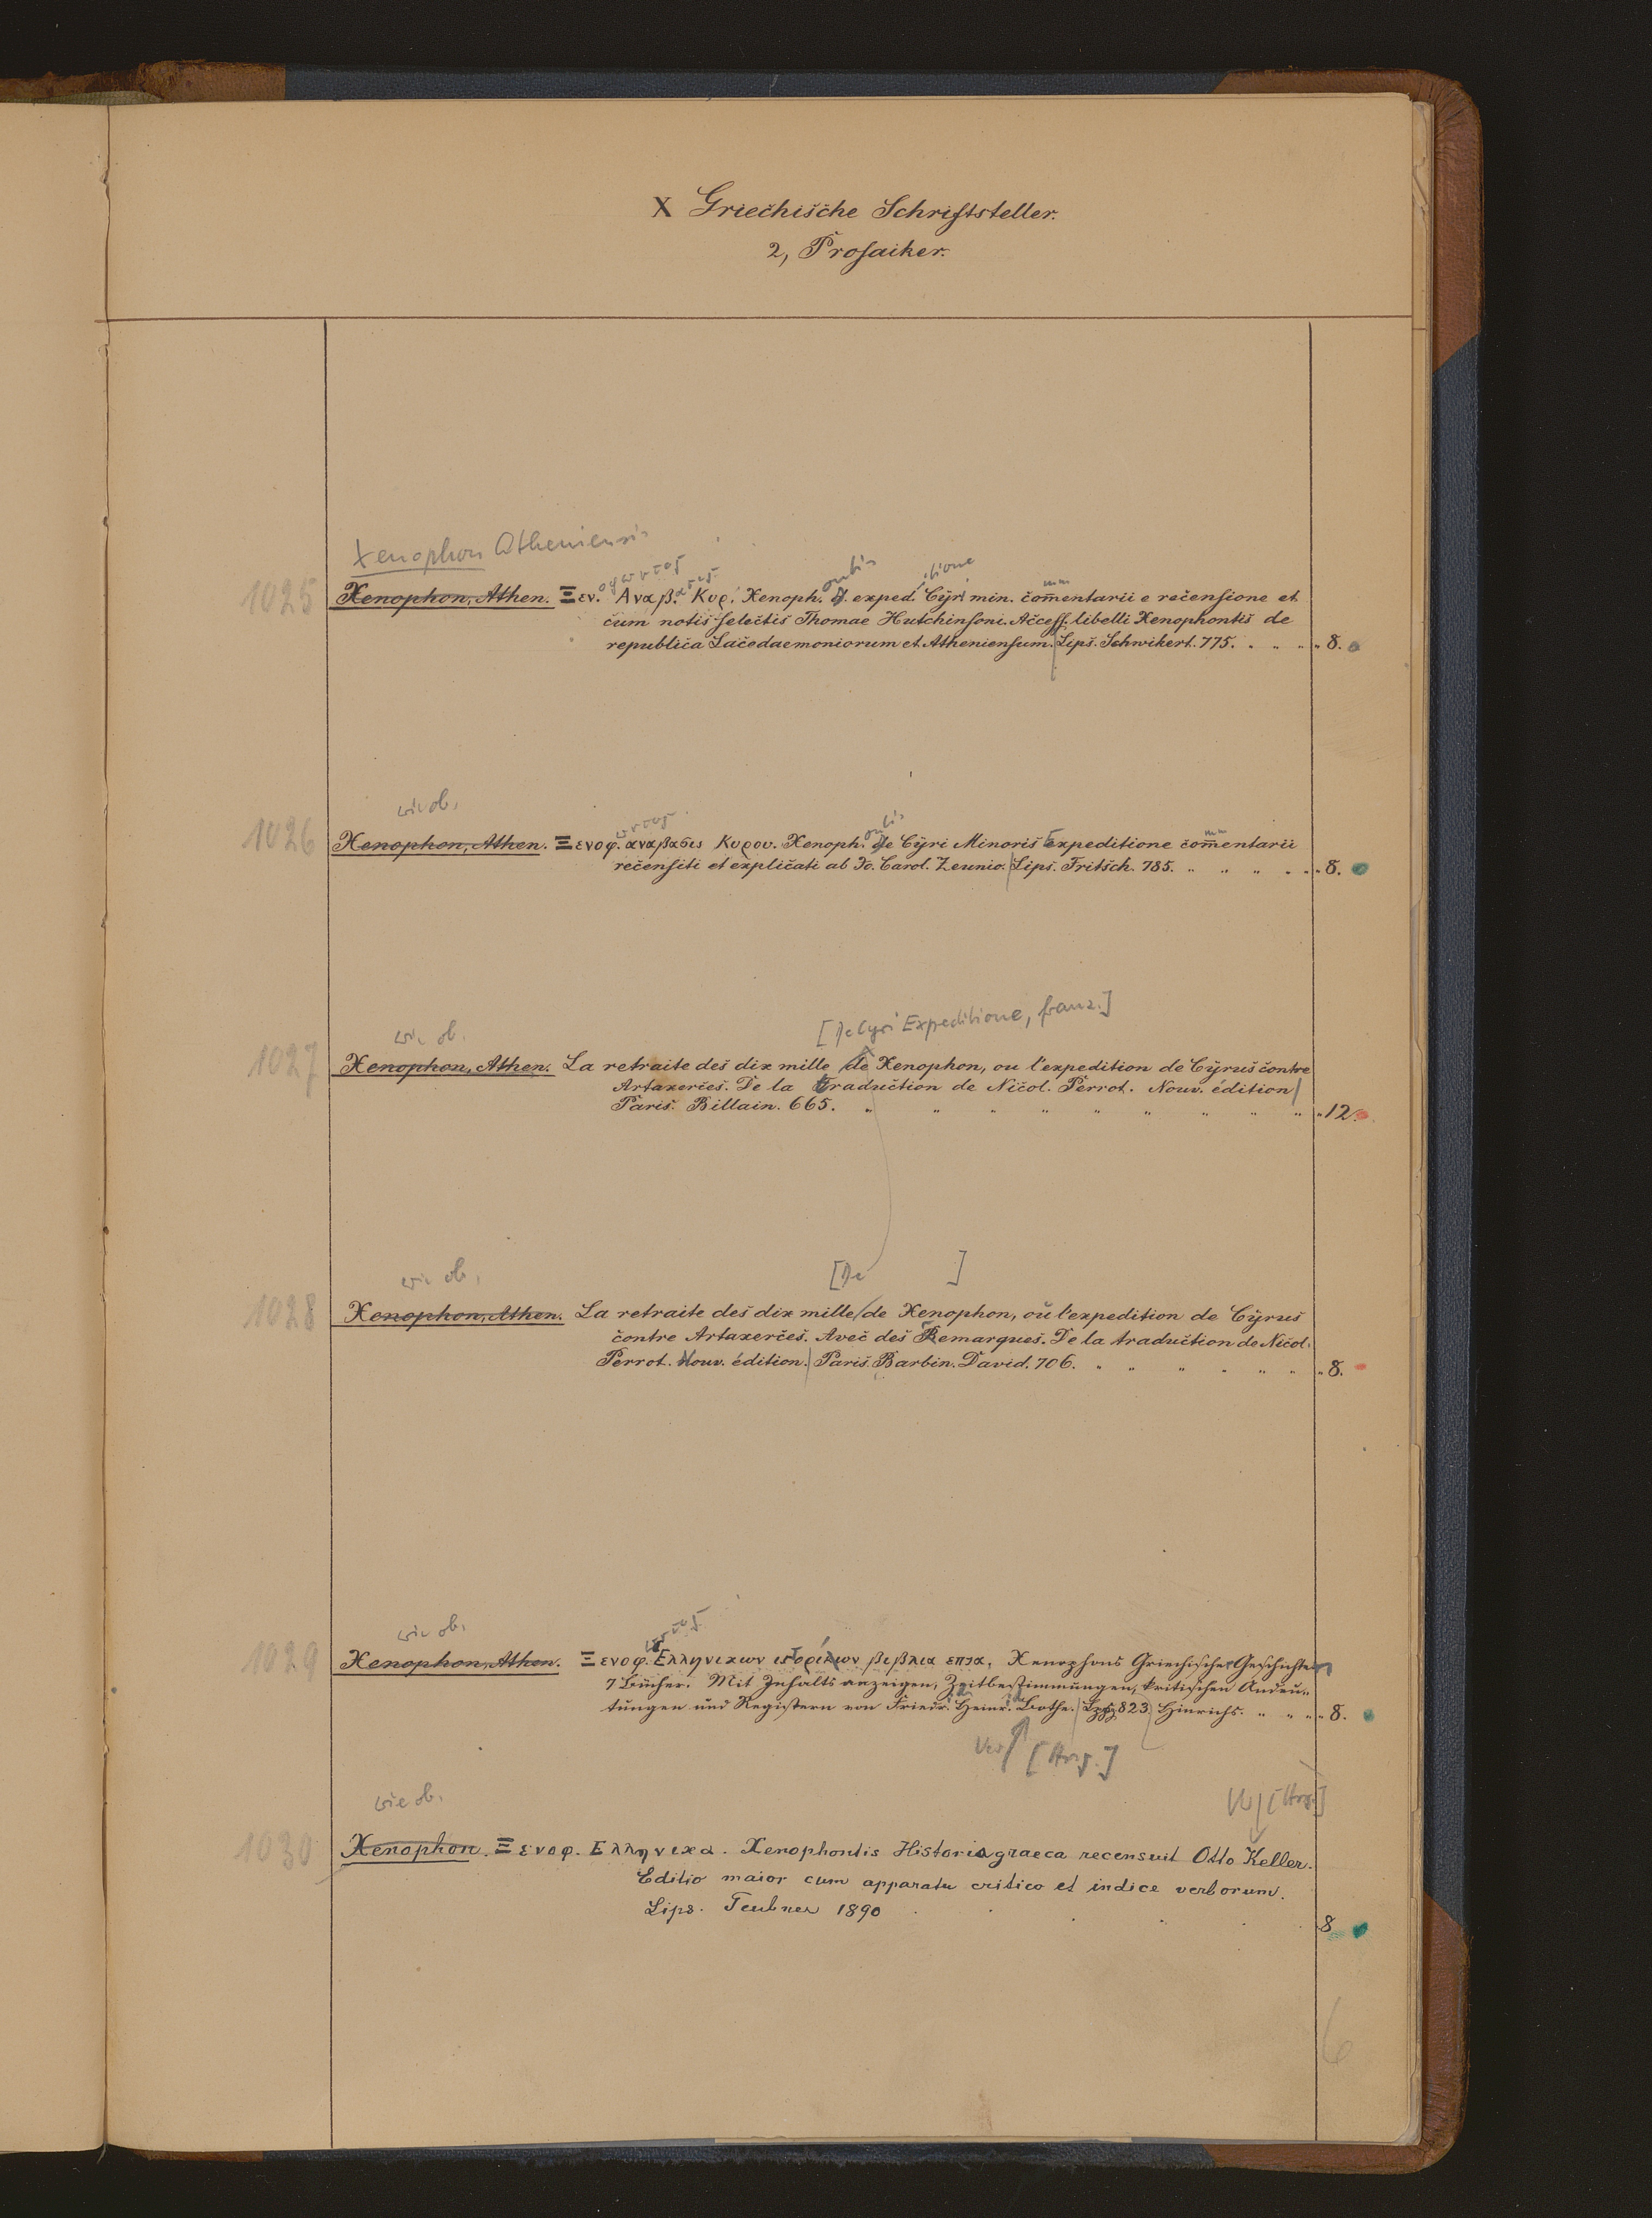 X Griechische Schriftsteller.
2, Prosaiker.
Xenophon Atheniensis
1025 Xenophon, Athen. Ξεν. Αναβ. Κυρ. Xenoph. d. exped. Cyri min. com̄entarii e recensione et
cum notis selectis Thomae Hutchinsoni. Access. libelli Xenophontis de
republica Lacedaemoniorum et Atheniensum. Lips. Schwikert. 775. 8.
wie ob.
1026 Xenophon, Athen. Ξενοφ. αναβασις Κυρου. Xenoph. de Cyri Minoris Expeditione com̄entarii
recensiti et explicati ab Io. Carol. Zeunio. Lips. Fritsch. 785. 8.
[De Cyri Expeditione, franz.]
wie ob.
1027 Xenophon, Athen. La retraite des dix mille de Xenophon, ou l'expedition de Cyrus contre
Artaxerces. De la traduction de Nicol. Perrot. Nouv. édition
Paris. Billain. 665. 12.
wie ob. [De ]
1028 Xenophon, Athen. La retraite des dix mille de Xenophon, ou l'expedition de Cyrus
contre Artaxerces. Avec des Remarques. De la traduction de Nicol.
Perrot. Nouv. édition. Paris. Barbin. David. 706. 8.
wie ob.
1029 Xenophon, Athen. Ξενοφ. Ελληνικων ιστοριων βιβλια επτα, Xenophons Griechische Geschichte
7 Bücher. Mit Inhaltsanzeigen, Zeitbestimmungen, kritischen Andeu-
tungen und Registern von Friedr. Heinr. Bothe. Lpzg 823. Hinrichs. 8.
[Hrsg.]
wie ob. [Hrsg.]
1030 Xenophon. Ξενοφ. Ελληνικα. Xenophontis Historia graeca recensuit Otto Keller.
Editio maior cum apparatu critico et indice verborum.
Lips. Teubner 1890 8
6